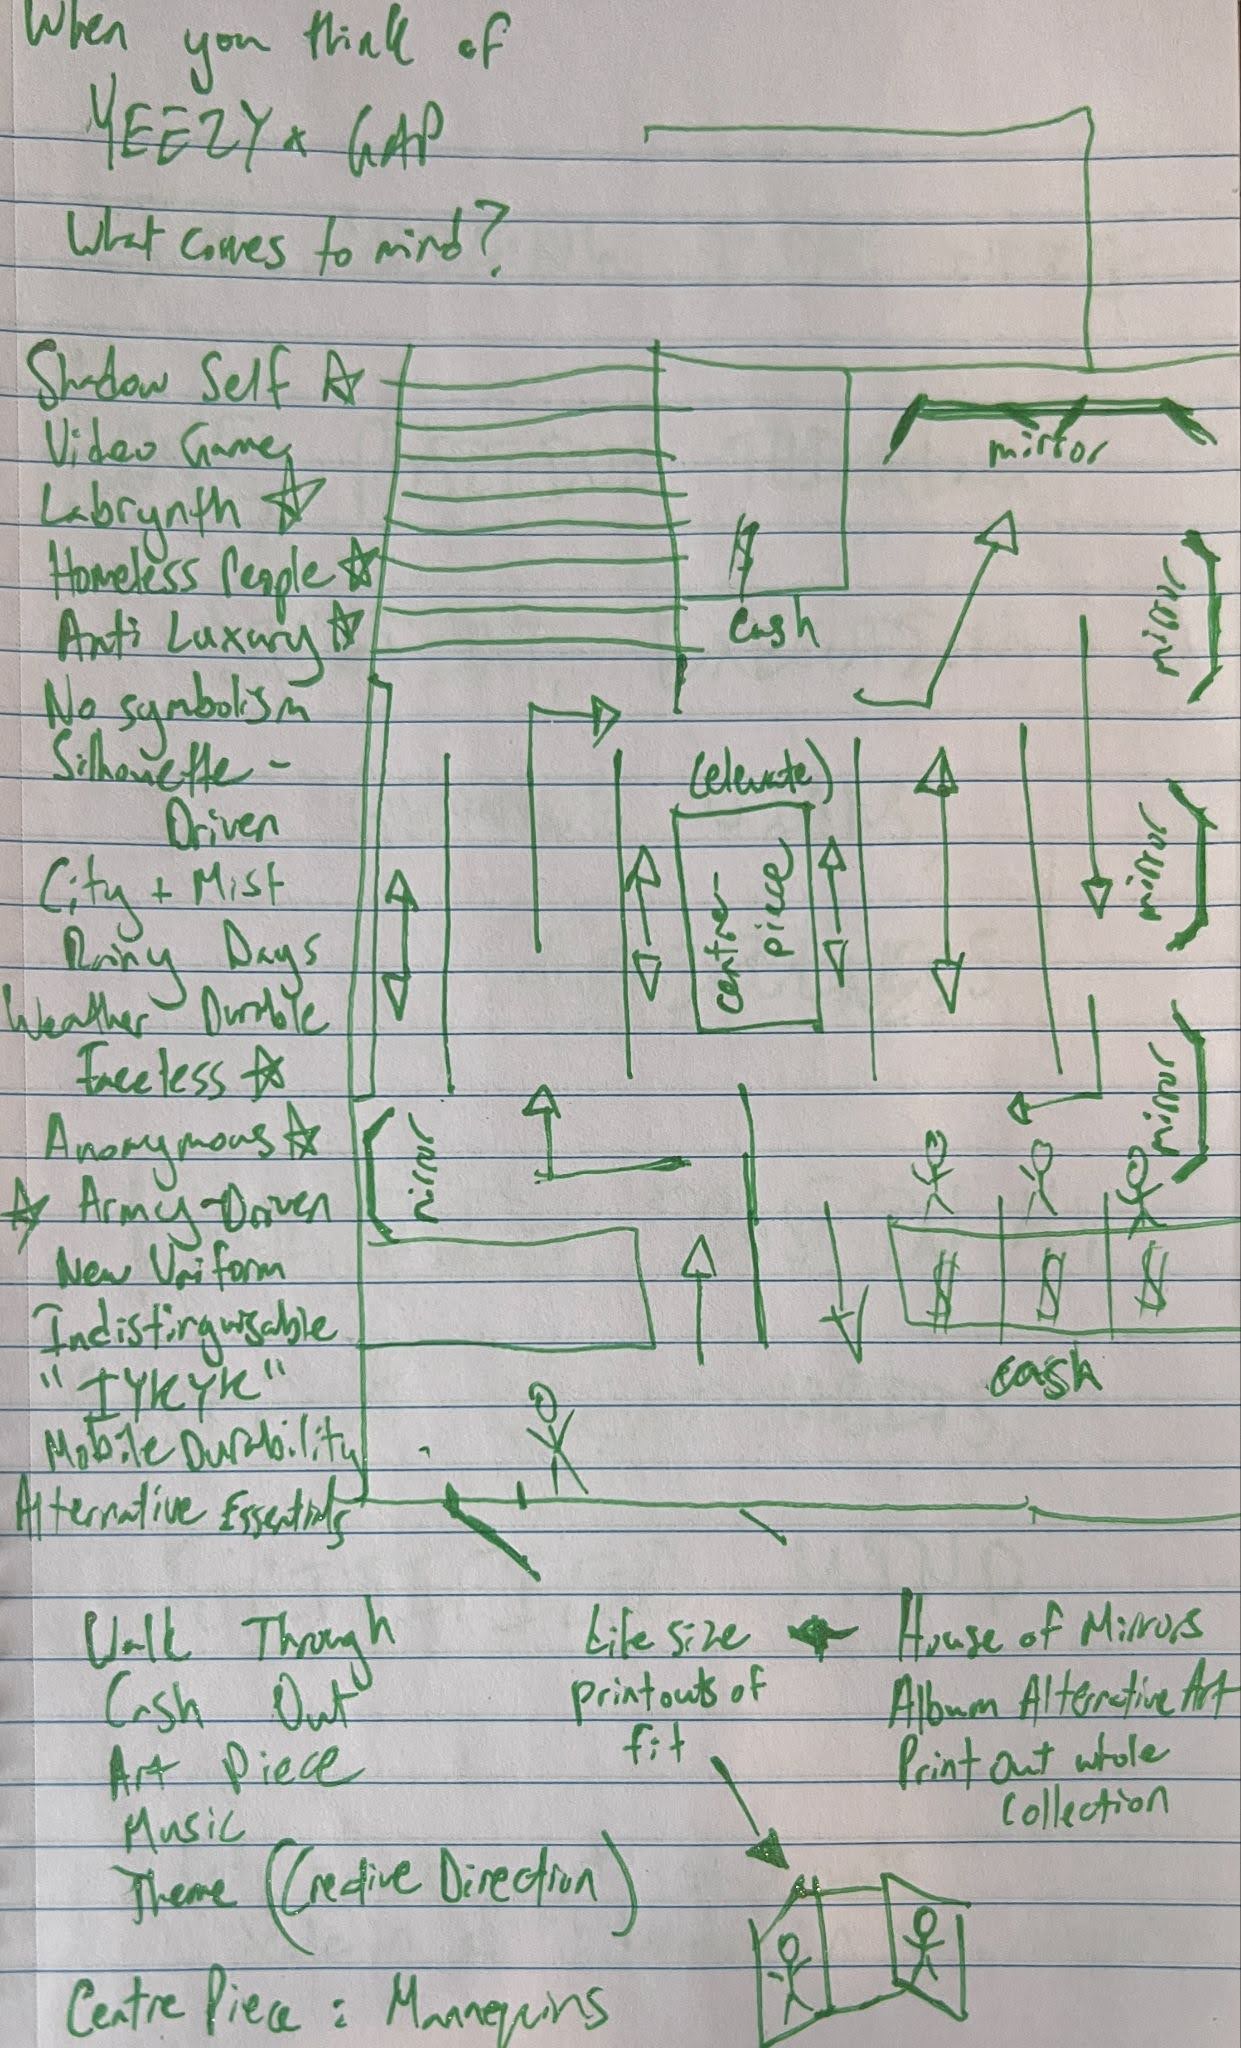 When you think of
YEEZY x GAP
What comes to mind?
Shadow Self ☆
Video Games
Labrynth ☆
Homeless People ☆
Anti Luxury ☆
No symbolism
Silhouette -
Driven
City + Mist
Rainy Days
Weather Durable
Faceless ☆
Anonymous ☆
☆ Army-Driven
New Uniform
Indistinguisable
"IYKYK"
Mobile Durability
Alternative Essentials
mirror
$
cash
mirror
(elevate)
centre-
piece
mirror
mirror
mirror
$ $ $
cash
Walk Through
Cash Out
Art Piece
Music
Theme (Creative Direction)
Centre Piece : Mannequins
Life size
printouts of
fit
House of Mirrors
Album Alternative Art
Print Out whole
Collection